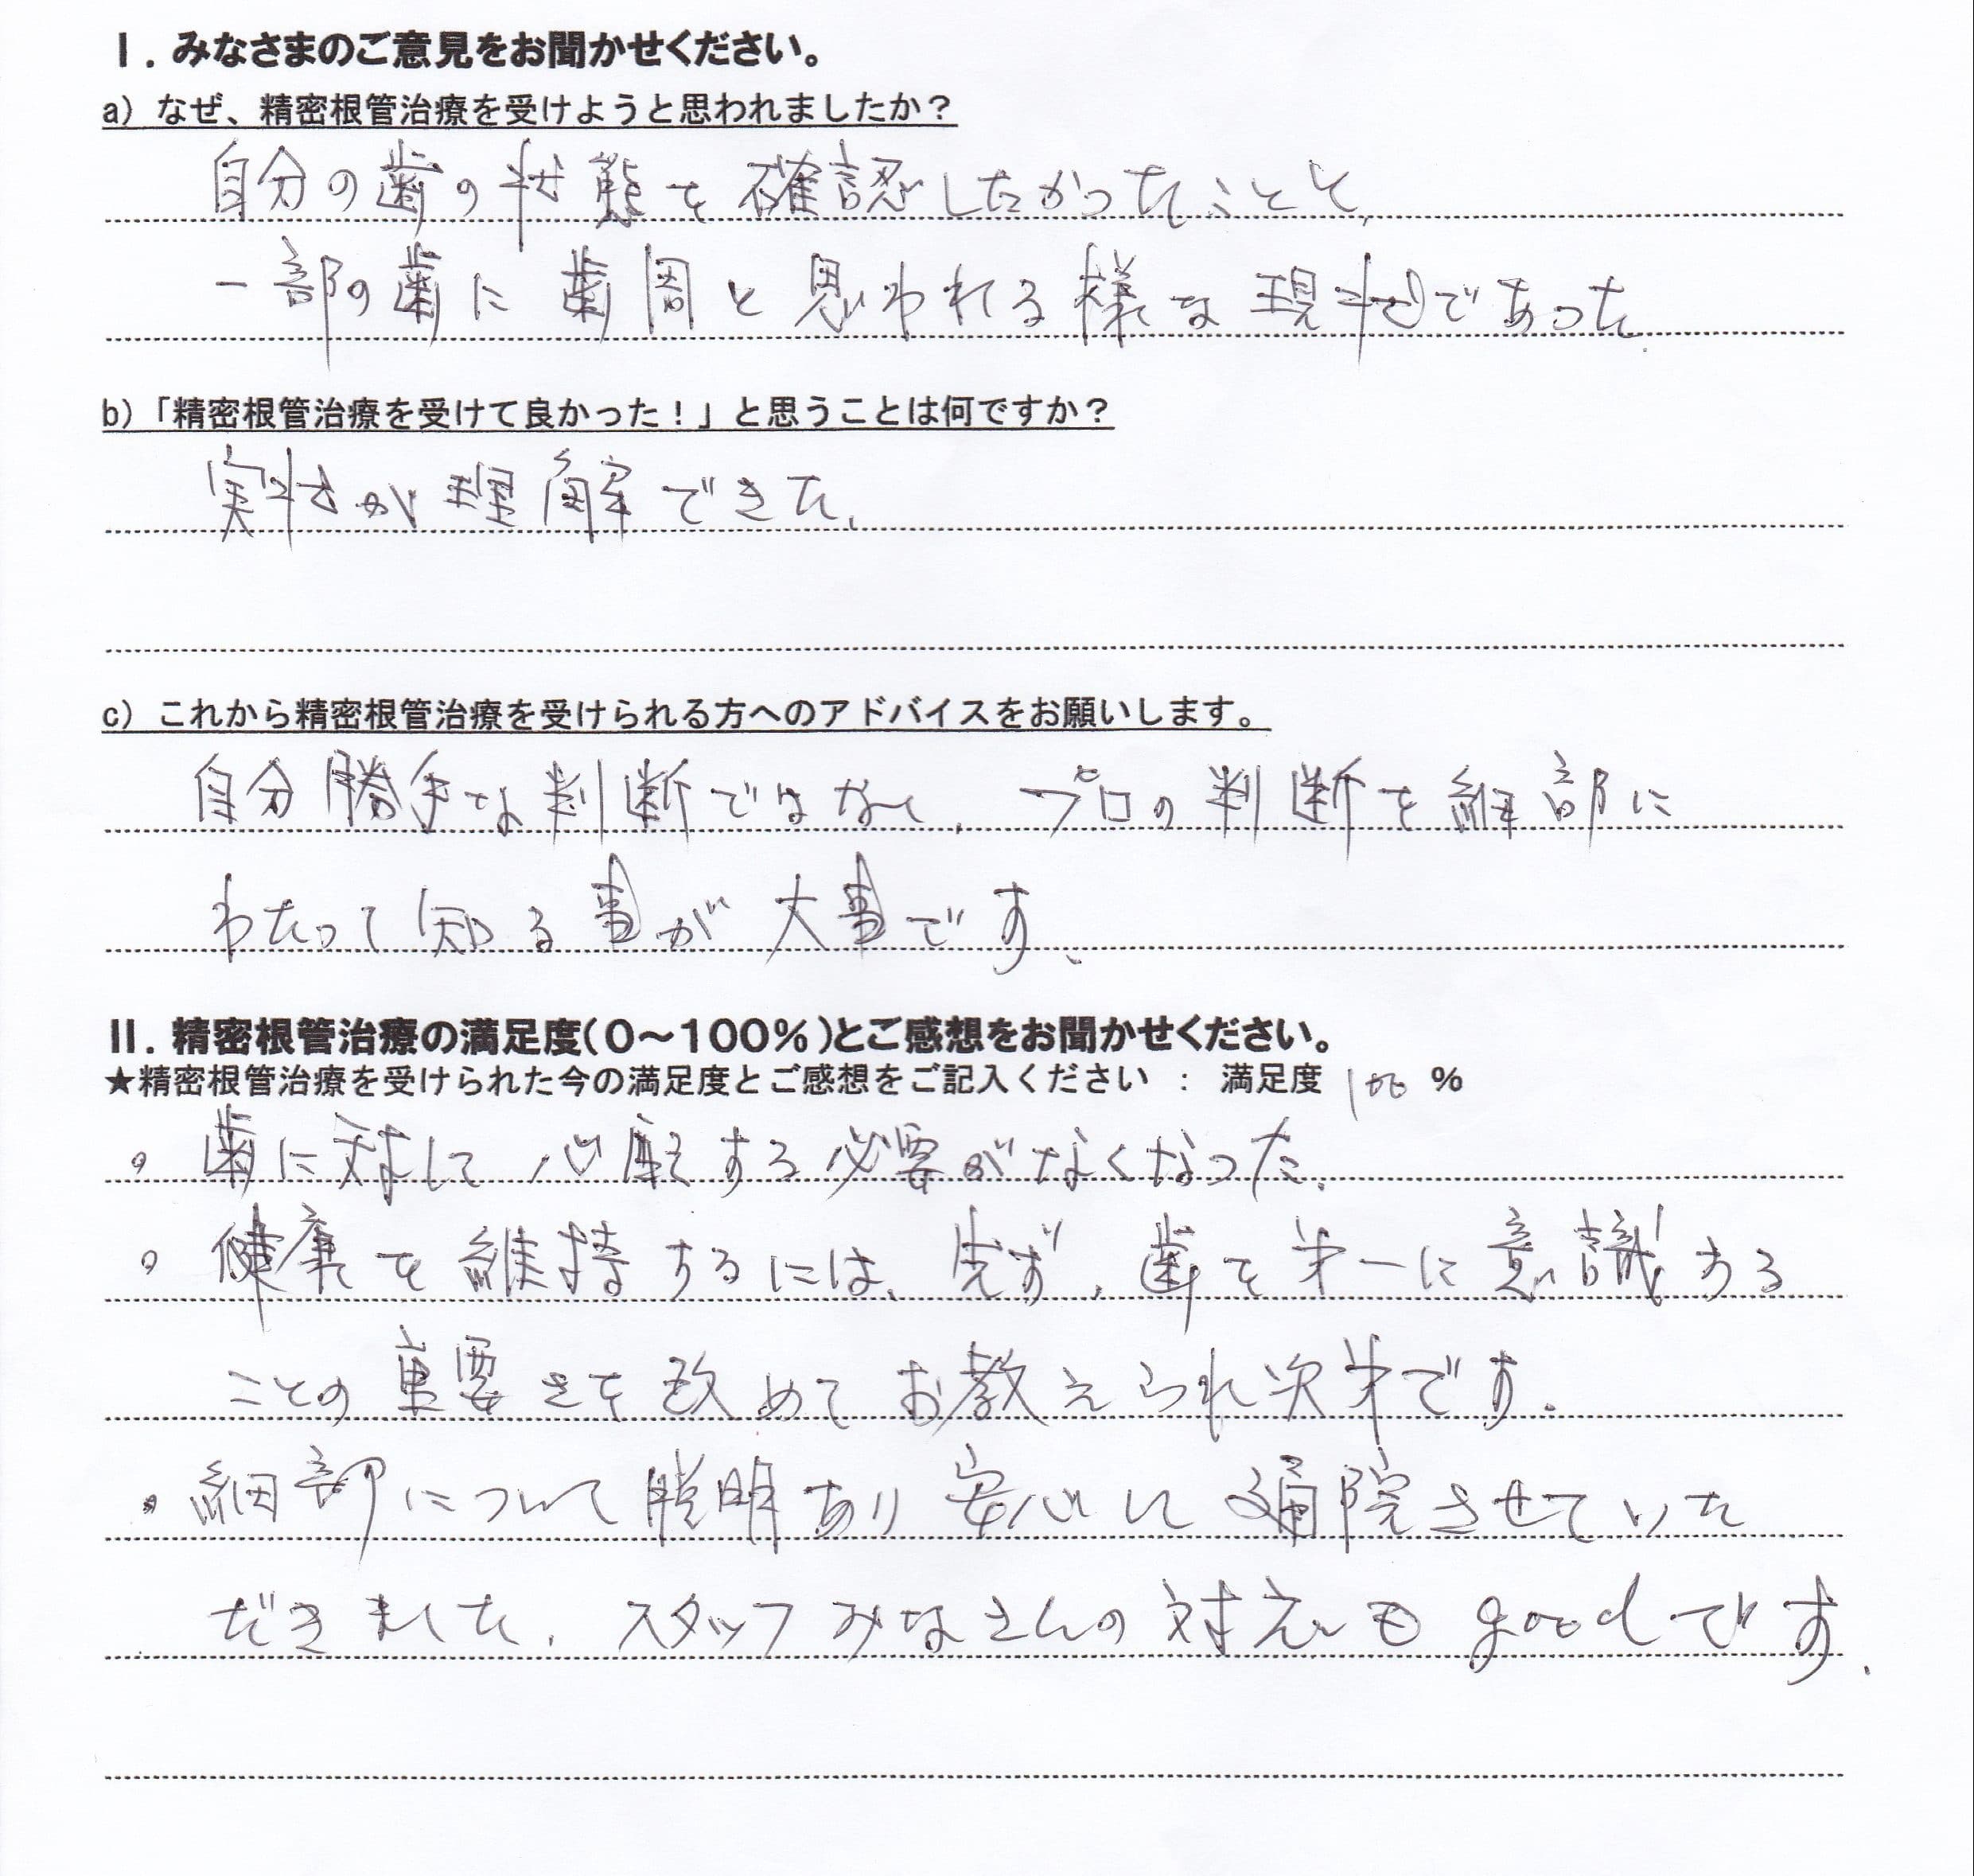 Ⅰ. みなさまのご意見をお聞かせください。
a) なぜ、精密根管治療を受けようと思われましたか？
自分の歯の状態を確認したかったことと、
一部の歯に歯周と思われる様な現状であった.
b)「精密根管治療を受けて良かった！」と思うことは何ですか？
実状が理解できた.
c) これから精密根管治療を受けられる方へのアドバイスをお願いします。
自分勝手な判断ではなく、プロの判断を細部に
わたって知る事が大事です.
Ⅱ. 精密根管治療の満足度(0～100%)とご感想をお聞かせください。
★精密根管治療を受けられた今の満足度とご感想をご記入ください ： 満足度 100 %
。歯に対して心配する必要がなくなった.
。健康を維持するには、先ず、歯を第一に意識する
ことの重要さを改めてお教えられ次第です.
・細部について説明あり安心して通院させていた
だきました. スタッフみなさんの対応も goodです.